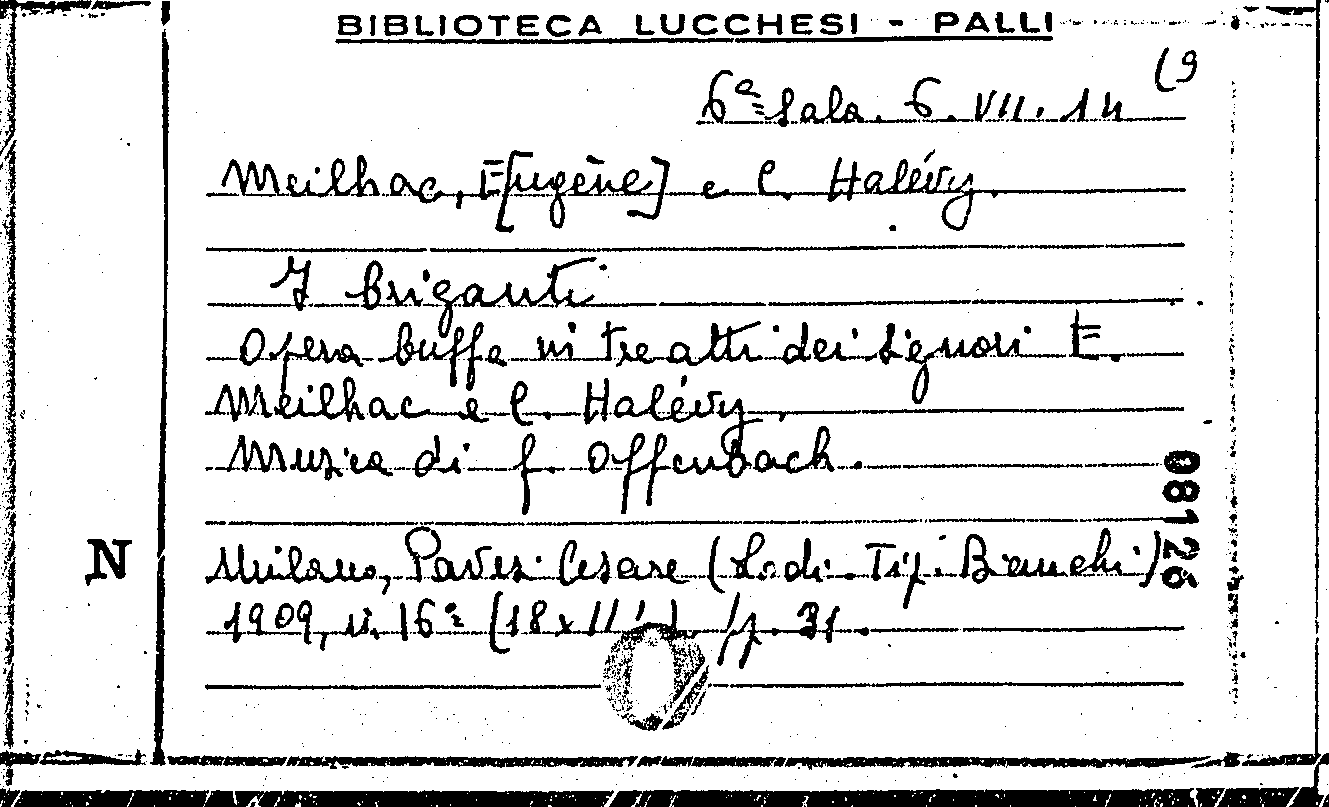 BIBLIOTECA LUCCHESI - PALLI
(9
6ª Sala. 6. VII. 14
Meilhac, E[ugène] e L. Halévy.
I briganti
Opera buffa in tre atti dei signori E.
Meilhac e L. Halévy.
Musica di J. Offenbach.
08126
N
Milano, Pavesi Cesare (Lodi. Tip. Bianchi)
1909, in 16° (18x11) pp. 31.